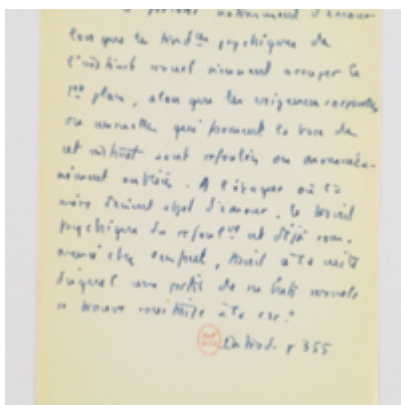 parlons notamment d'amour
lorsque les tend^ces psychiques de
l'instinct sexuel viennent occuper le
1^er plan, alors que les exigences corporelles
ou sensuelles qui forment la base de
cet instinct sont refoulées ou momenta-
nément oubliées. A l'époque où la
mère devient objet d'amour, le travail
psychique du refoul^nt est déjà com-
mencé chez l'enfant, travail à la suite
duquel une partie de ses buts sexuels
se trouve soustraite à la csc."
Introd. p 355